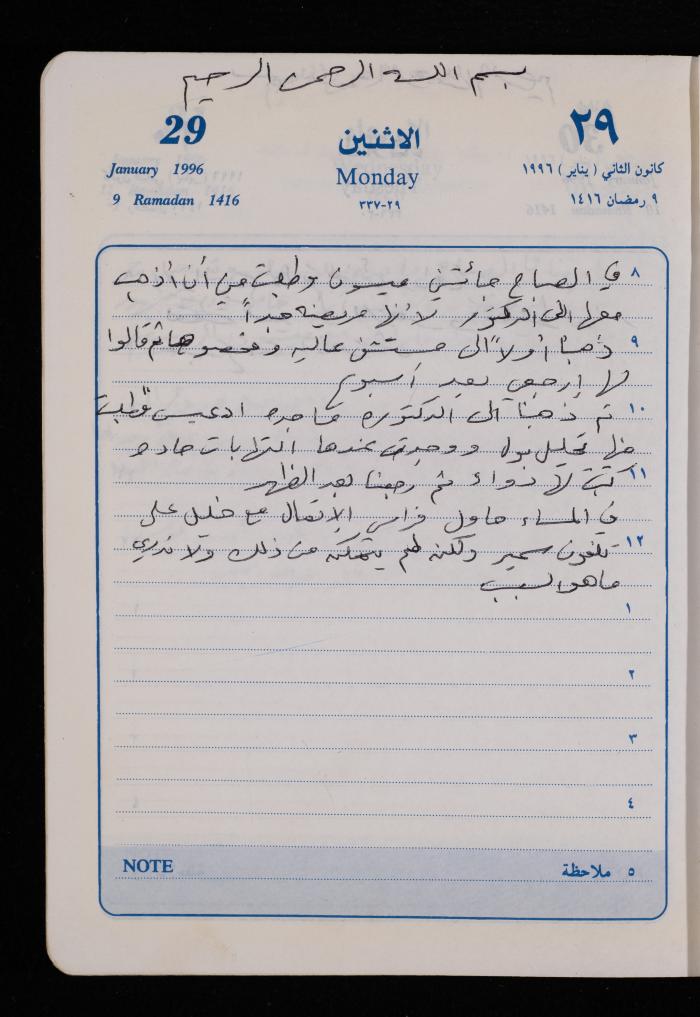 بسم الله الرحمن الرحيم
29 الاثنين ٢٩
January 1996 Monday كانون الثاني ( يناير ) ١٩٩٦
9 Ramadan 1416 ٣٣٧-٢٩ ٩ رمضان ١٤١٦
٨ في الصباح جائتني ميسون وطلبت مني أن أذهب
معها الى الدكتور لأنها مريضه جداً
٩ ذهبنا أولاً الى مستشفى عاليه وفحصوها ثم قالوا
لها إرجعي بعد أسبوع
١٠ ثم ذهبنا الى الدكتوره ماجده ادعيس فطلبت
منها تحليل بول ووجدت عندها التهابات حاده
١١ كتبت لها دواء ثم رجعنا بعد الظهر
في المساء حاول فراس الإتصال مع خليل على
١٢ تلفون سمير ولكنه لم يتمكن من ذلك ولا ندري
ما هو السبب
١
٢
٣
٤
NOTE ٥ ملاحظة